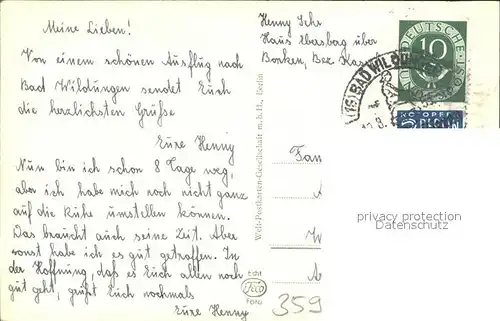 Meine Lieben!
Von einem schönen Ausflug nach
Bad Wildungen sendet Euch
die herzlichsten Grüße
Eure Henny
Nun bin ich schon 8 Tage weg,
aber ich habe mich noch nicht ganz
auf die Ruhe umstellen können.
Das braucht auch seine Zeit. Aber
sonst habe ich es gut getroffen. In
der Hoffnung, daß es Euch allen noch
gut geht, grüßt Euch nochmals
Eure Henny
Henny
Haus über
Borken, Bez Kassel
DEUTSCHE POST
10
(16) BAD WILDUNGEN
NOTOPFER
2 BERLIN
Welt-Postkarten-Gesellschaft m.b.H., Berlin
Fam
A
W
A
privacy protection
Datenschutz
Echt
Foto
359